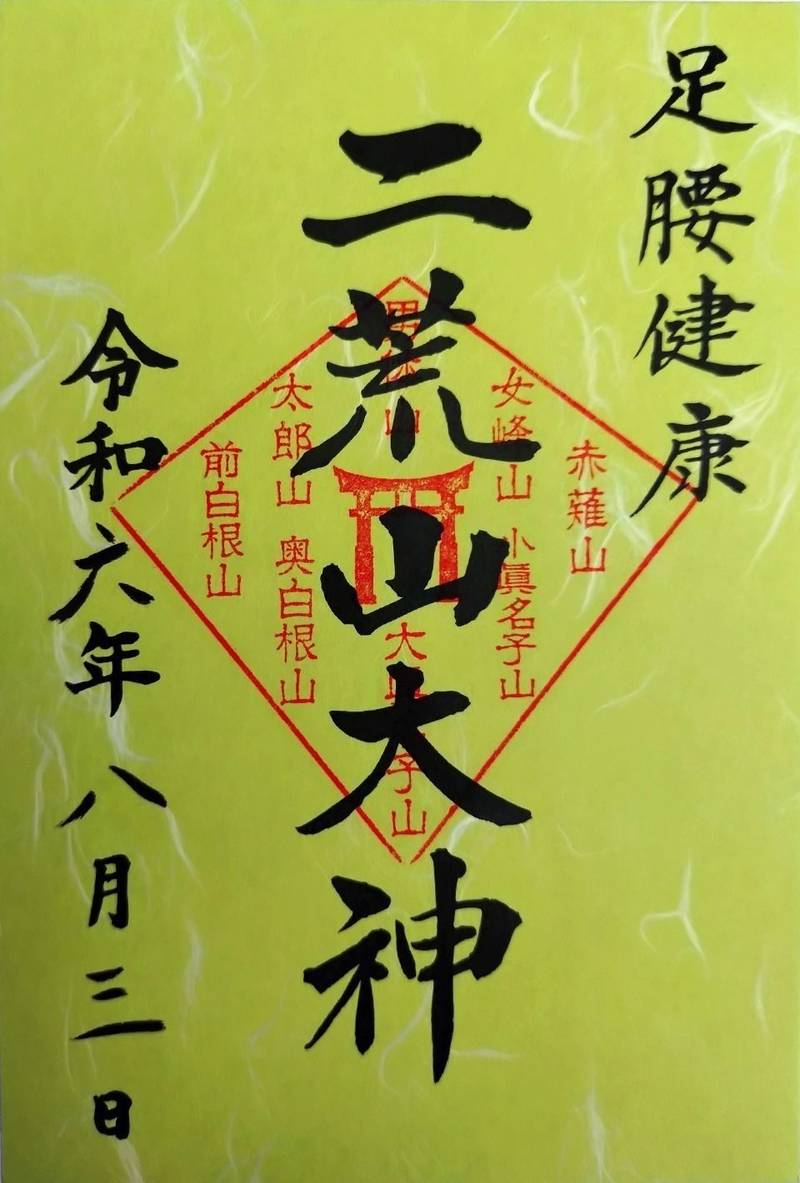 足腰健康
二荒山大神
赤薙山
女峰山
小眞名子山
山
大
子山
太郎山
奥白根山
前白根山
令和六年八月三日